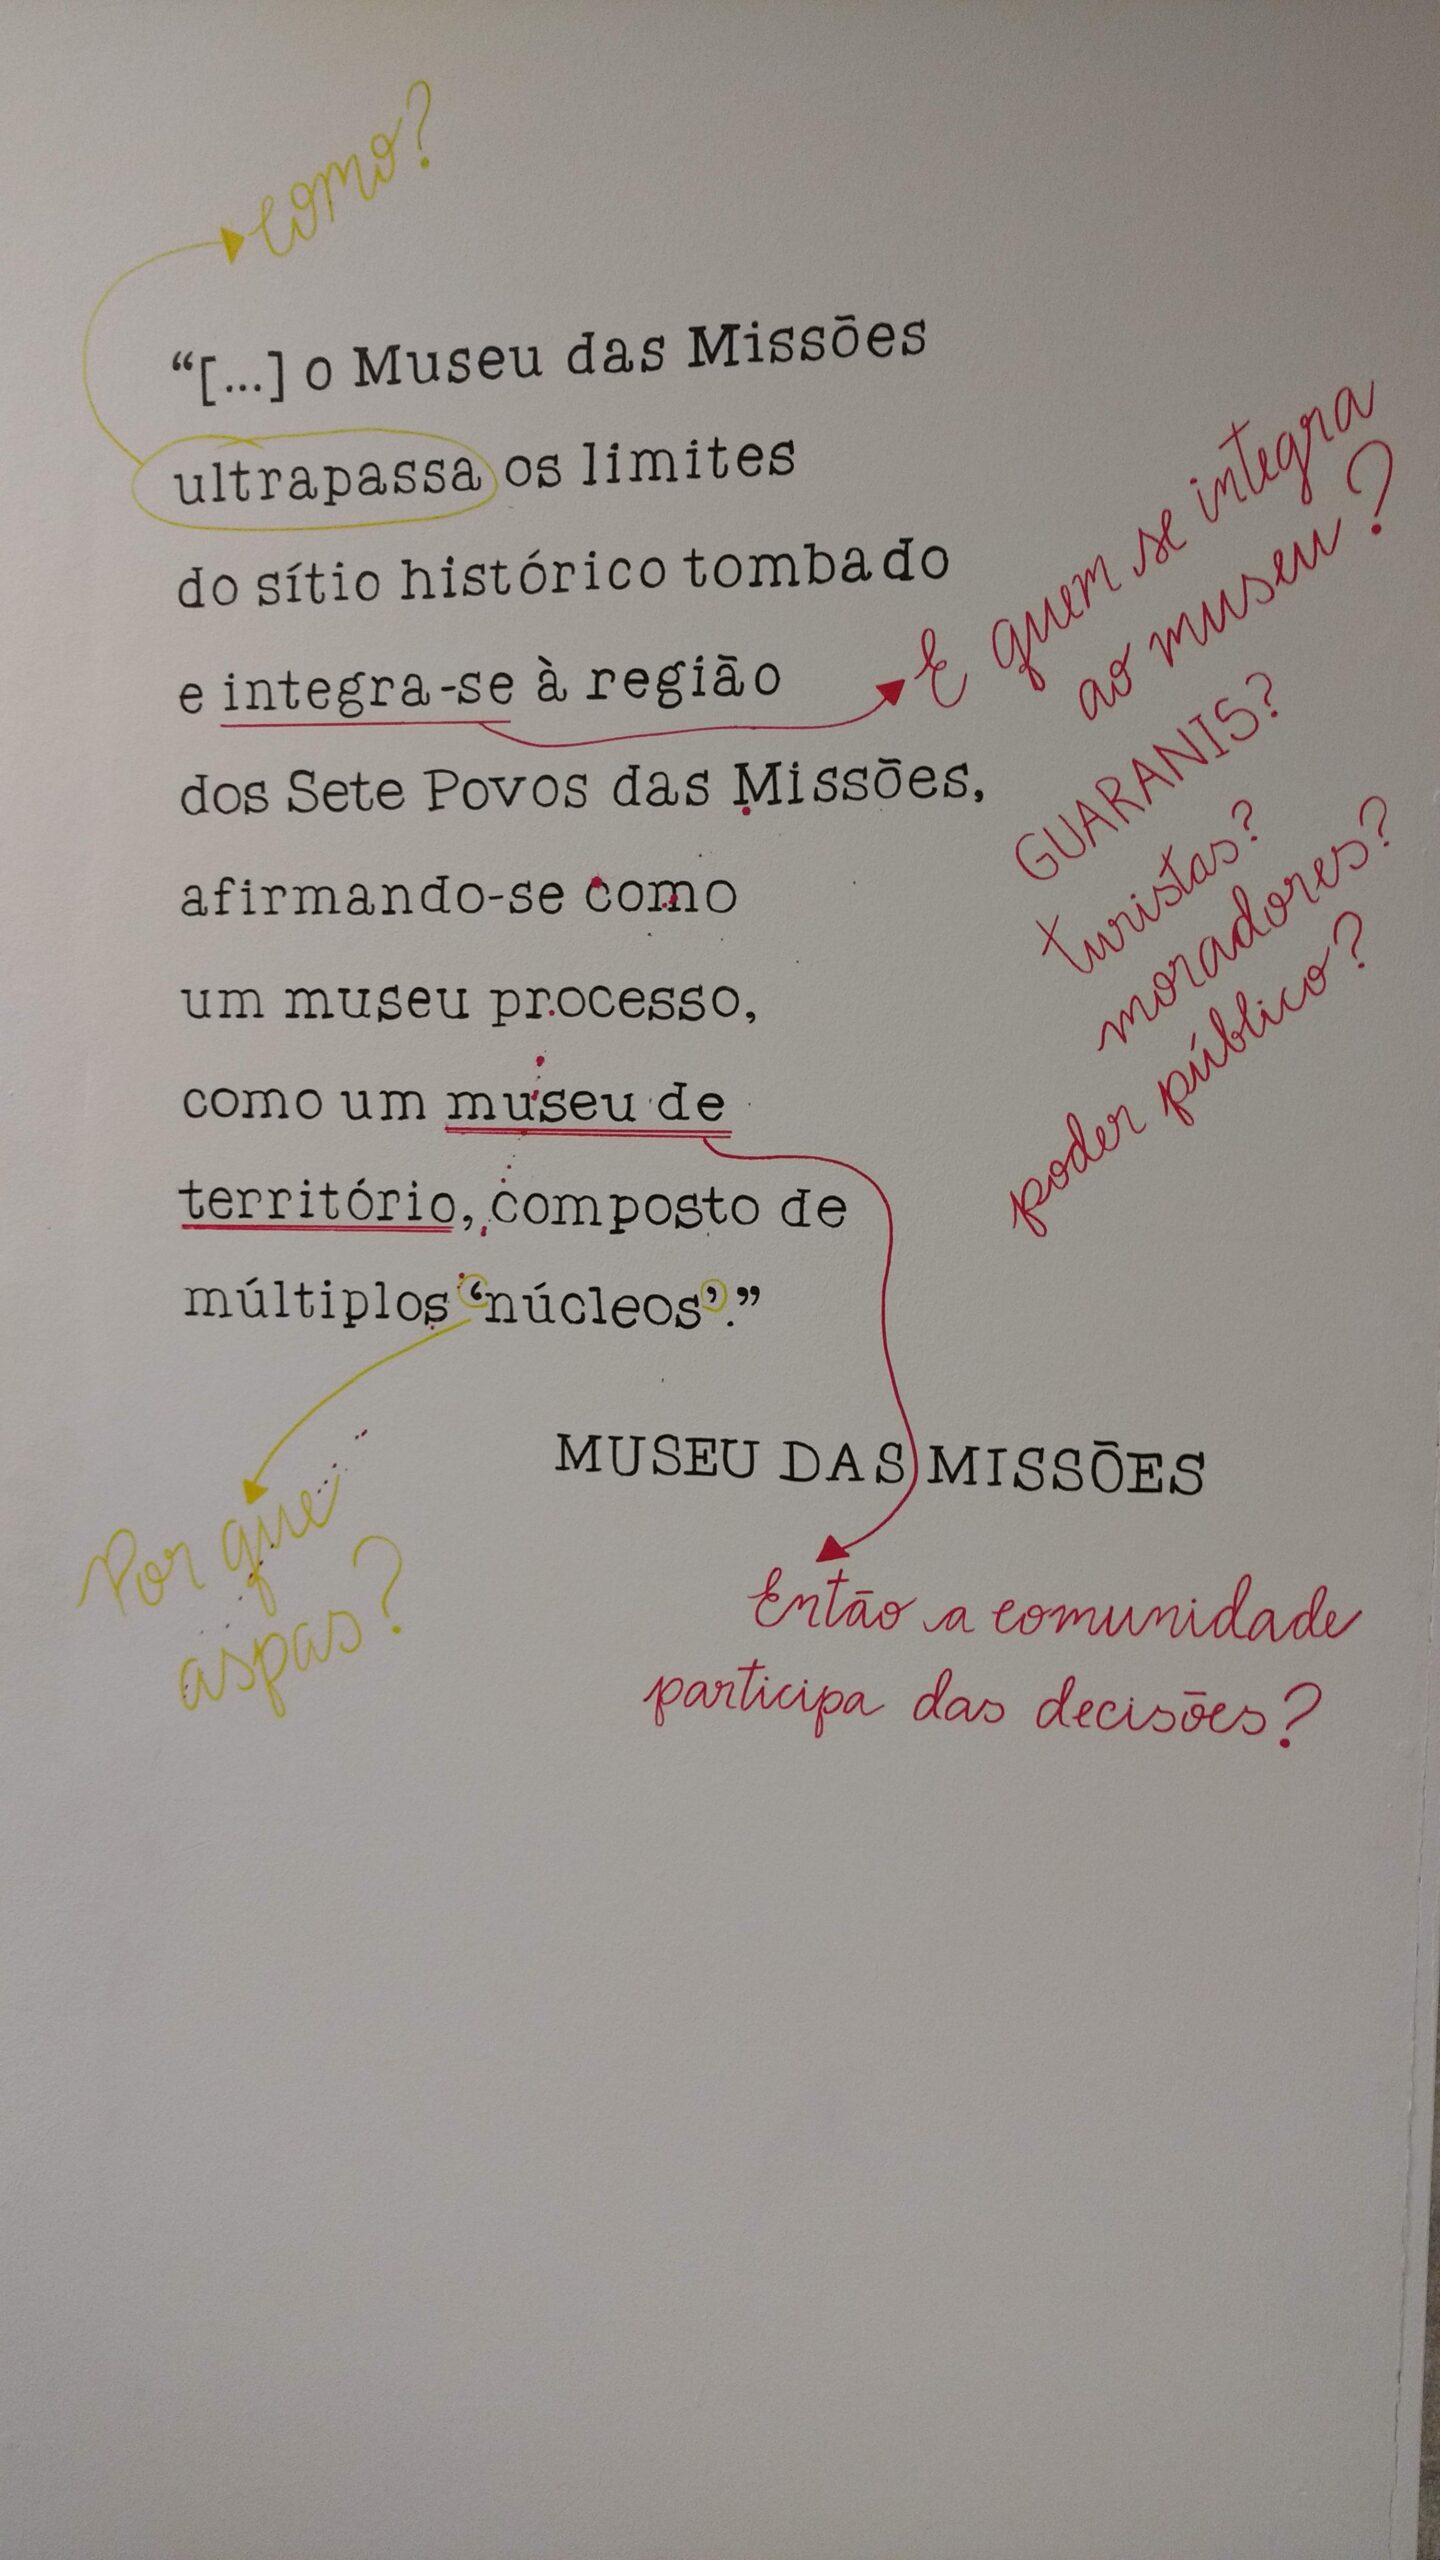 como?
“[...] o Museu das Missões
ultrapassa os limites
do sítio histórico tombado
e integra-se à região
dos Sete Povos das Missões,
afirmando-se como
um museu processo,
como um museu de
território, composto de
múltiplos ‘núcleos’.”
MUSEU DAS MISSÕES
E quem se integra
ao museu?
GUARANIS?
turistas?
moradores?
poder público?
Por que
aspas?
Então a comunidade
participa das decisões?